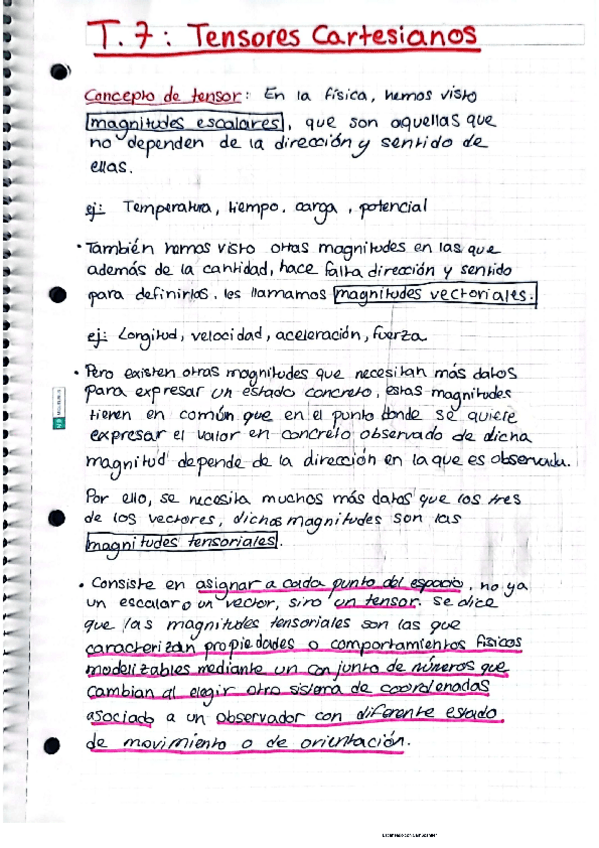 T.7: Tensores Cartesianos
Concepto de tensor: En la física, hemos visto
magnitudes escalares, que son aquellas que
no dependen de la dirección y sentido de
ellas.
ej: Temperatura, tiempo, carga, potencial
· También hemos visto otras magnitudes en las que
además de la cantidad, hace falta dirección y sentido
para definirlas, les llamamos magnitudes vectoriales.
ej: Longitud, velocidad, aceleración, fuerza.
· Pero existen otras magnitudes que necesitan más datos
para expresar un estado concreto, estas magnitudes
tienen en común que en el punto donde se quiere
expresar el valor en concreto observado de dicha
magnitud depende de la dirección en la que es observada.
Por ello, se necesita muchos más datos que los tres
de los vectores, dichas magnitudes son las
magnitudes tensoriales.
· Consiste en asignar a cada punto del espacio, no ya
un escalar o un vector, sino un tensor. Se dice
que las magnitudes tensoriales son las que
caracterizan propiedades o comportamientos físicos
modelizables mediante un conjunto de números que
cambian al elegir otro sistema de coordenadas
asociado a un observador con diferente estado
de movimiento o de orientación.